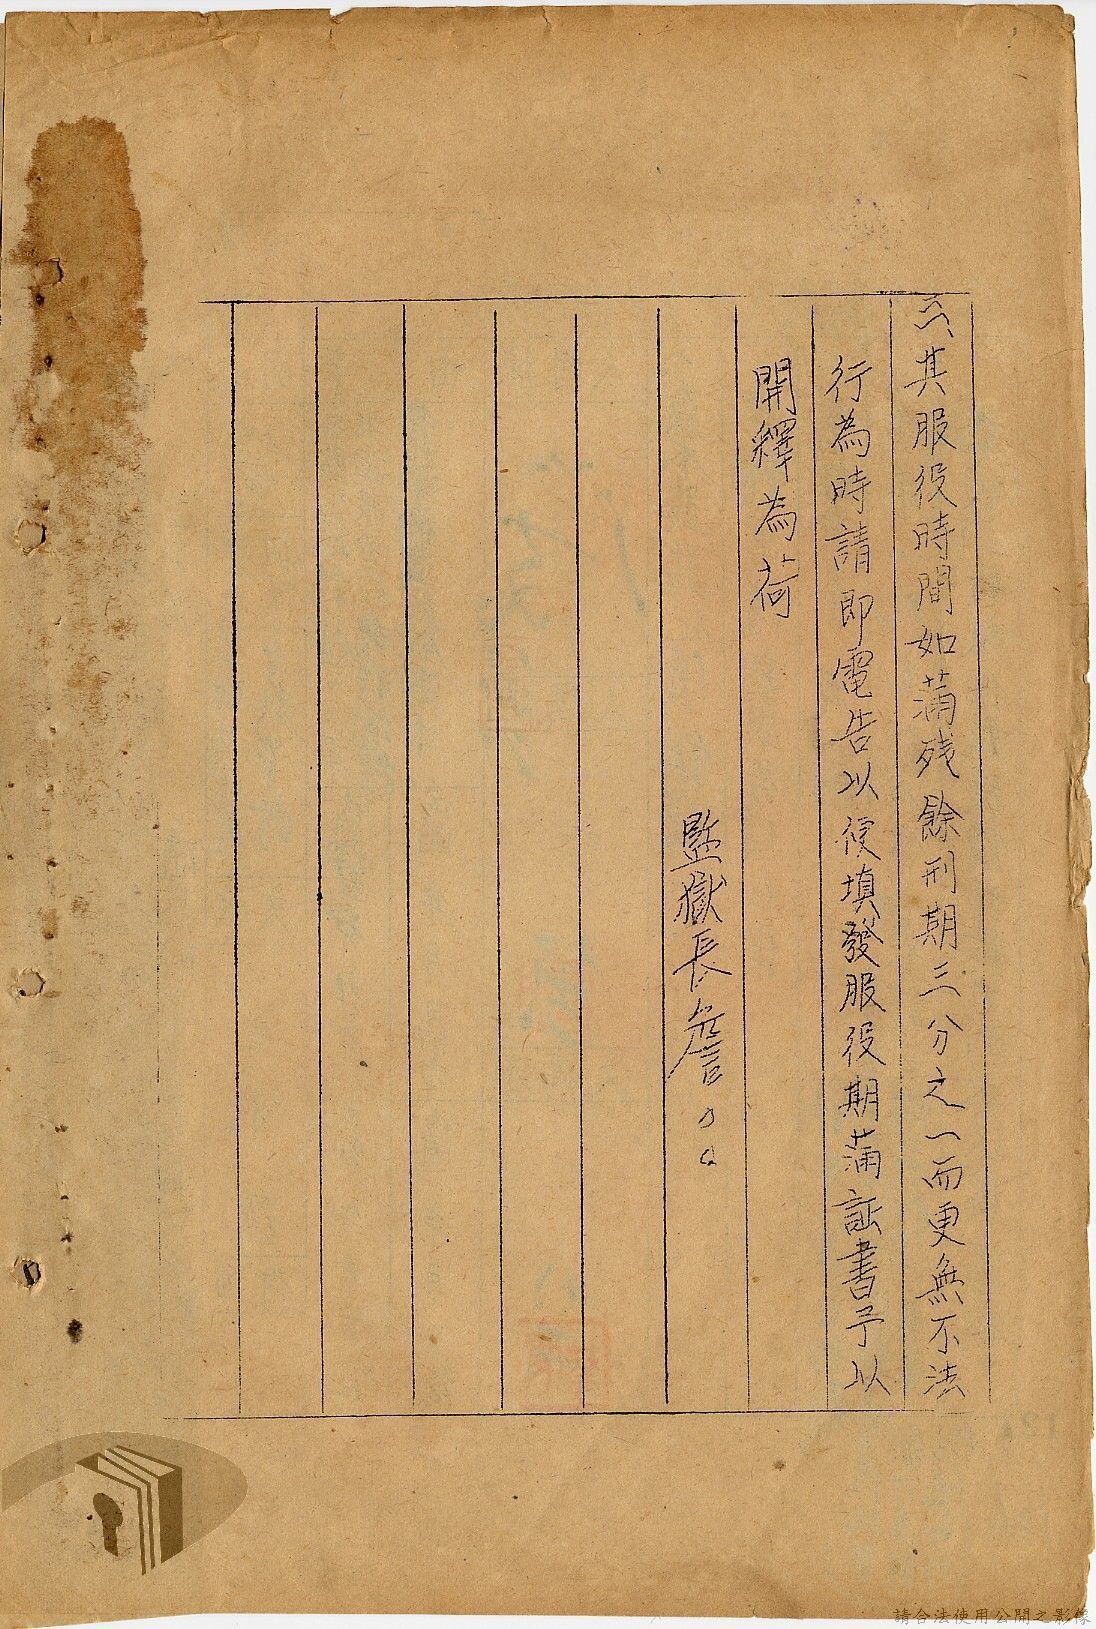 六、其服役時間如滿残餘刑期三分之一而更無不法
行為時請即電告以便填發服役期滿証書予以
開釋為荷
監獄長詹○○
請合法使用公開之影像